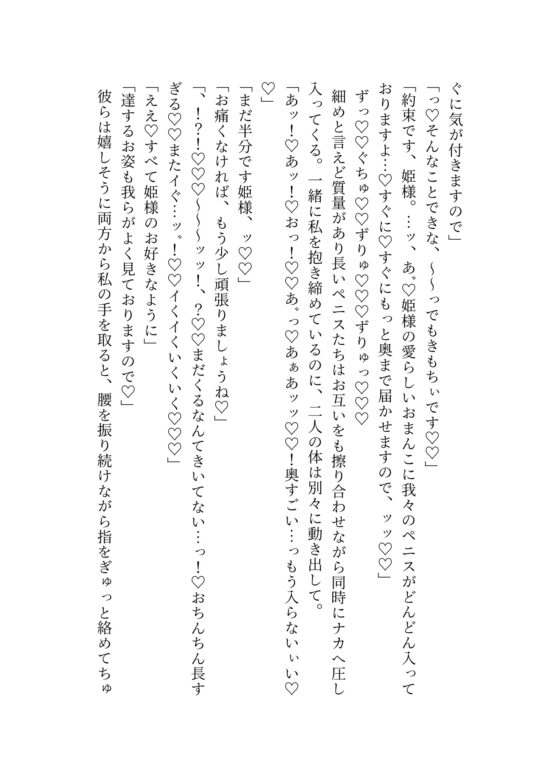 ぐに気が付きますので」
「っ♡そんなことできな、～～っでもきもちぃです♡♡」
「約束です、姫様。…ッ、あ゛♡姫様の愛らしいおまんこに我々のペニスがどんどん入って
おりますよ…♡すぐに♡すぐにもっと奥まで届かせますので、ッッ♡♡」
ずっ♡♡ぐちゅ♡♡ずりゅ♡♡♡ずりゅっ♡♡♡
細めと言えど質量があり長いペニスたちはお互いをも擦り合わせながら同時にナカへ圧し
入ってくる。一緒に私を抱き締めているのに、二人の体は別々に動き出して。
「あッ！♡あッ！♡おっ！♡♡あ゛っ♡あぁあッッ♡♡！奥すごい…っもう入らないぃい♡
♡」
「まだ半分です姫様、ッ♡♡」
「お痛くなければ、もう少し頑張りましょうね♡」
「、！？！♡♡♡～～～ッッ！、？♡♡まだくるなんてきいてない…っ！♡おちんちん長す
ぎる♡♡またイぐ…ッ゛！♡♡イくイくいくいく♡♡♡」
「ええ♡すべて姫様のお好きなように」
「達するお姿も我らがよく見ておりますので♡」
彼らは嬉しそうに両方から私の手を取ると、腰を振り続けながら指をぎゅっと絡めてちゅ